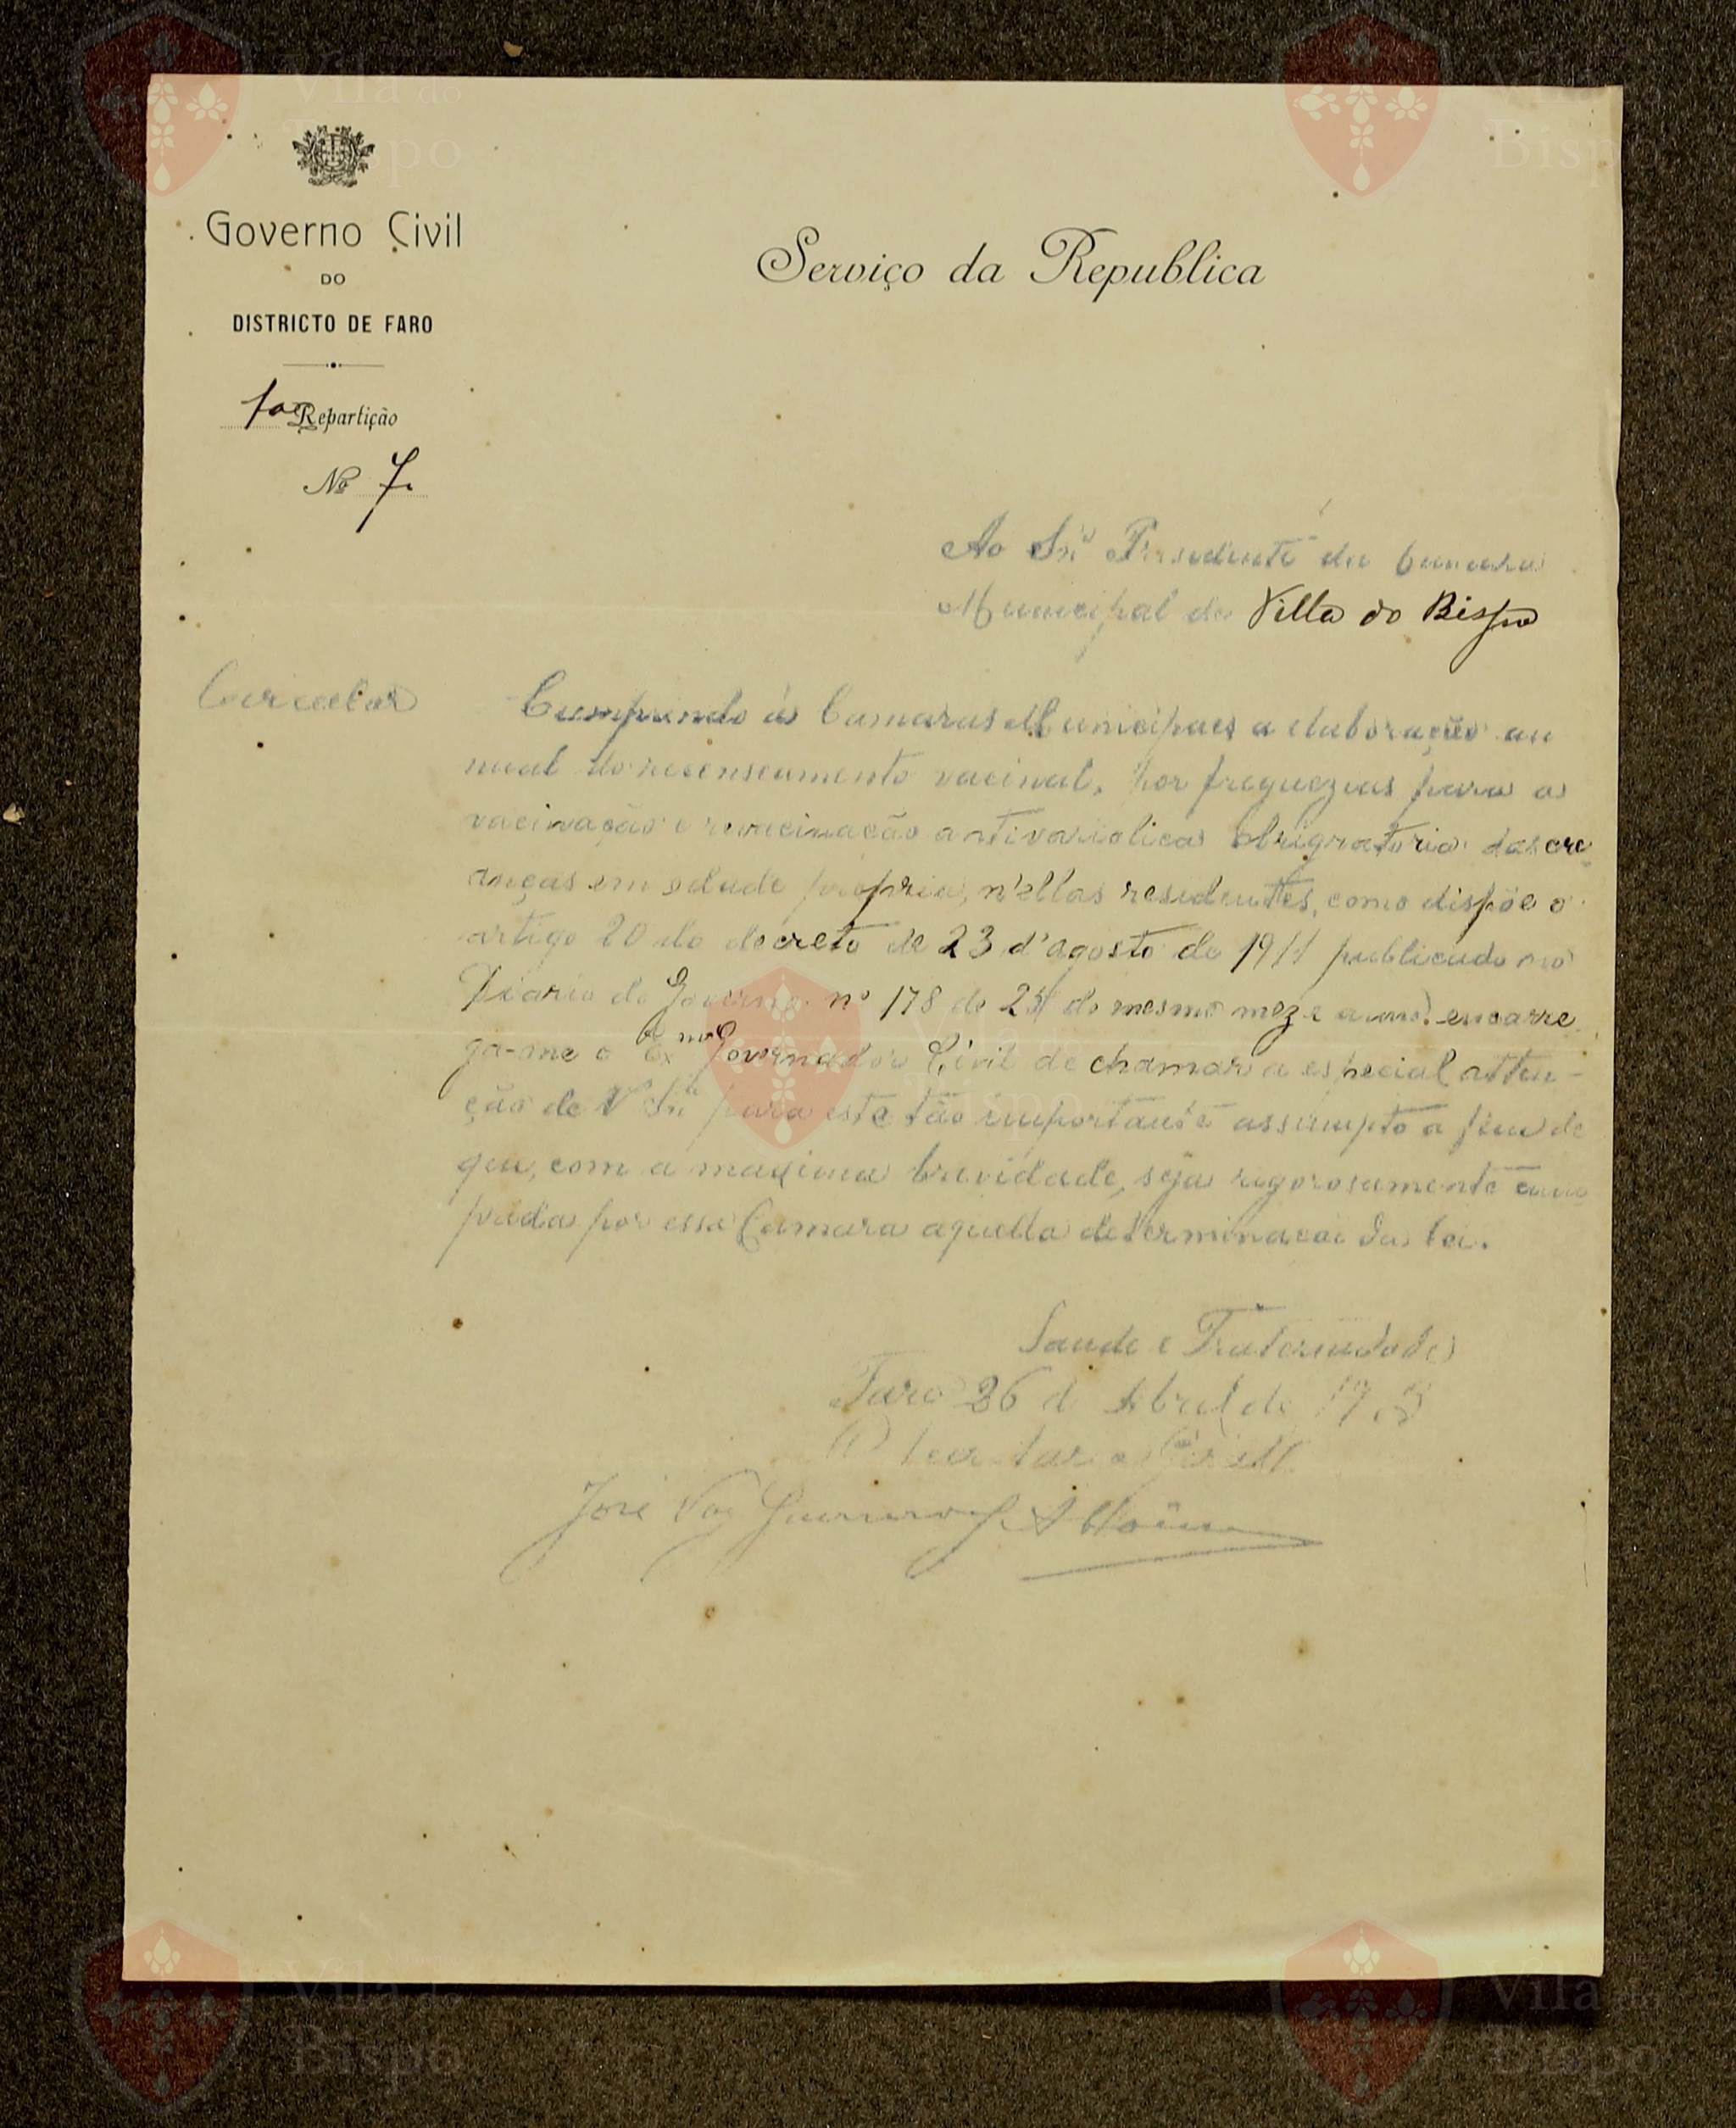 Governo Civil
DO
DISTRICTO DE FARO
1ª Repartição
Nº 7.
Serviço da Republica
Ao Snr. Presidente da Camara
Municipal de Villa do Bispo
Circular
Cumprindo ás Camaras Municipaes a elaboração an
nual do recenseamento vacinal, por freguezias para a
vacinação e revacinação antivariolica obrigatoria das cre
anças em edade propria, n'ellas residentes, como dispõe o
artigo 20 do decreto de 23 d'agosto de 1911 publicado no
Diario do Governo nº 178 de do mesmo mez e anno, encarre
ga-me o Exmo Governador Civil de chamar a especial atten-
ção de V. Snrª para este tão importante assumpto a fim de
que, com a maxima brevidade, seja rigorosamente cum
prida por essa Camara aquella determinacão da lei.
Saude e Fraternidade
Faro 26 d Abril de
O Secretario Geral
José Vaz Guerreiro
Vila do
Bispo